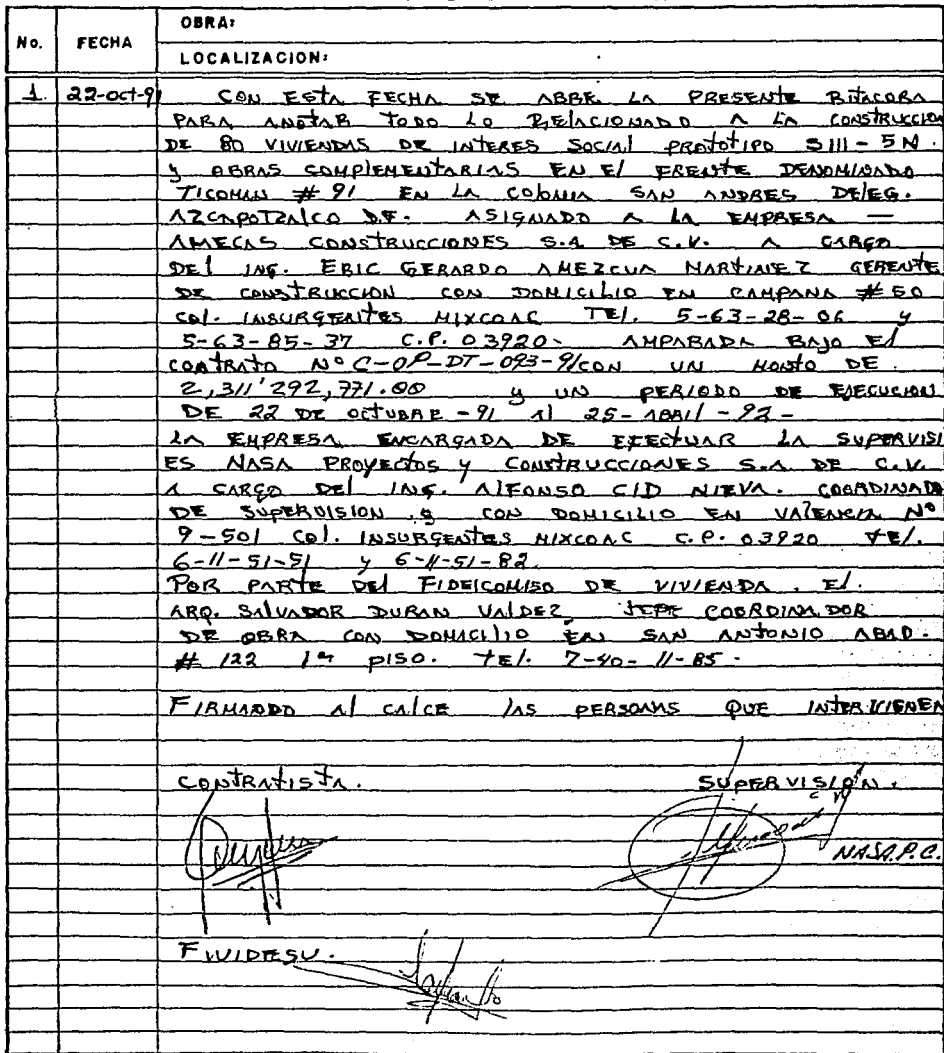 No. FECHA OBRA:
LOCALIZACION:
1. 22-oct-91 CON ESTA FECHA SE ABRE LA PRESENTE BITACORA
PARA ANOTAR TODO LO RELACIONADO A LA CONSTRUCCION
DE 80 VIVIENDAS DE INTERES SOCIAL PROTOTIPO SIII-5N.
y OBRAS COMPLEMENTARIAS EN El FRENTE DENOMINADO
TICOMAN # 91 EN LA COLONIA SAN ANDRES DELEG.
AZCAPOTZALCO D.F. ASIGNADO A LA EMPRESA —
AMECAS CONSTRUCCIONES S.A DE C.V. A CARGO
DEL ING. ERIC GERARDO AMEZCUA MARTINEZ GERENTE
DE CONSTRUCCION CON DOMICILIO EN CAMPANA #50
COl. INSURGENTES MIXCOAC TEl. 5-63-28-06 y
5-63-85-37 C.P. 03920- AMPARADA BAJO El
CONTRATO Nº C-OP-DT-093-91 CON UN MONTO DE
2,311'292,771.00 y UN PERIODO DE EJECUCION
DE 22 DE OCTUBRE -91 Al 25-ABRIl-92-
LA EMPRESA ENCARGADA DE EFECTUAR LA SUPERVISI
ES NASA PROYECTOS y CONSTRUCCIONES S.A DE C.V.
A CARGO DEl ING. AlFONSO CID NIEVA. COORDINADO
DE SUPERVISION y CON DOMICILIO EN VALENCIA Nº
9-501 COl. INSURGENTES MIXCOAC C.P. 03920 TEl.
6-11-51-51 y 6-11-51-82.
POR PARTE DEl FIDEICOMISO DE VIVIENDA. El.
ARQ. SALVADOR DURAN VALDEZ, JEFE COORDINADOR
DE OBRA CON DOMICILIO EN SAN ANTONIO ABAD.
# 122 1er PISO. TEl. 7-40-11-85.
FIRMANDO Al CALCE lAS PERSONAS QUE INTERVIENEN
CONTRATISTA. SUPERVISION.
NASA.P.C.
FIVIDESU.